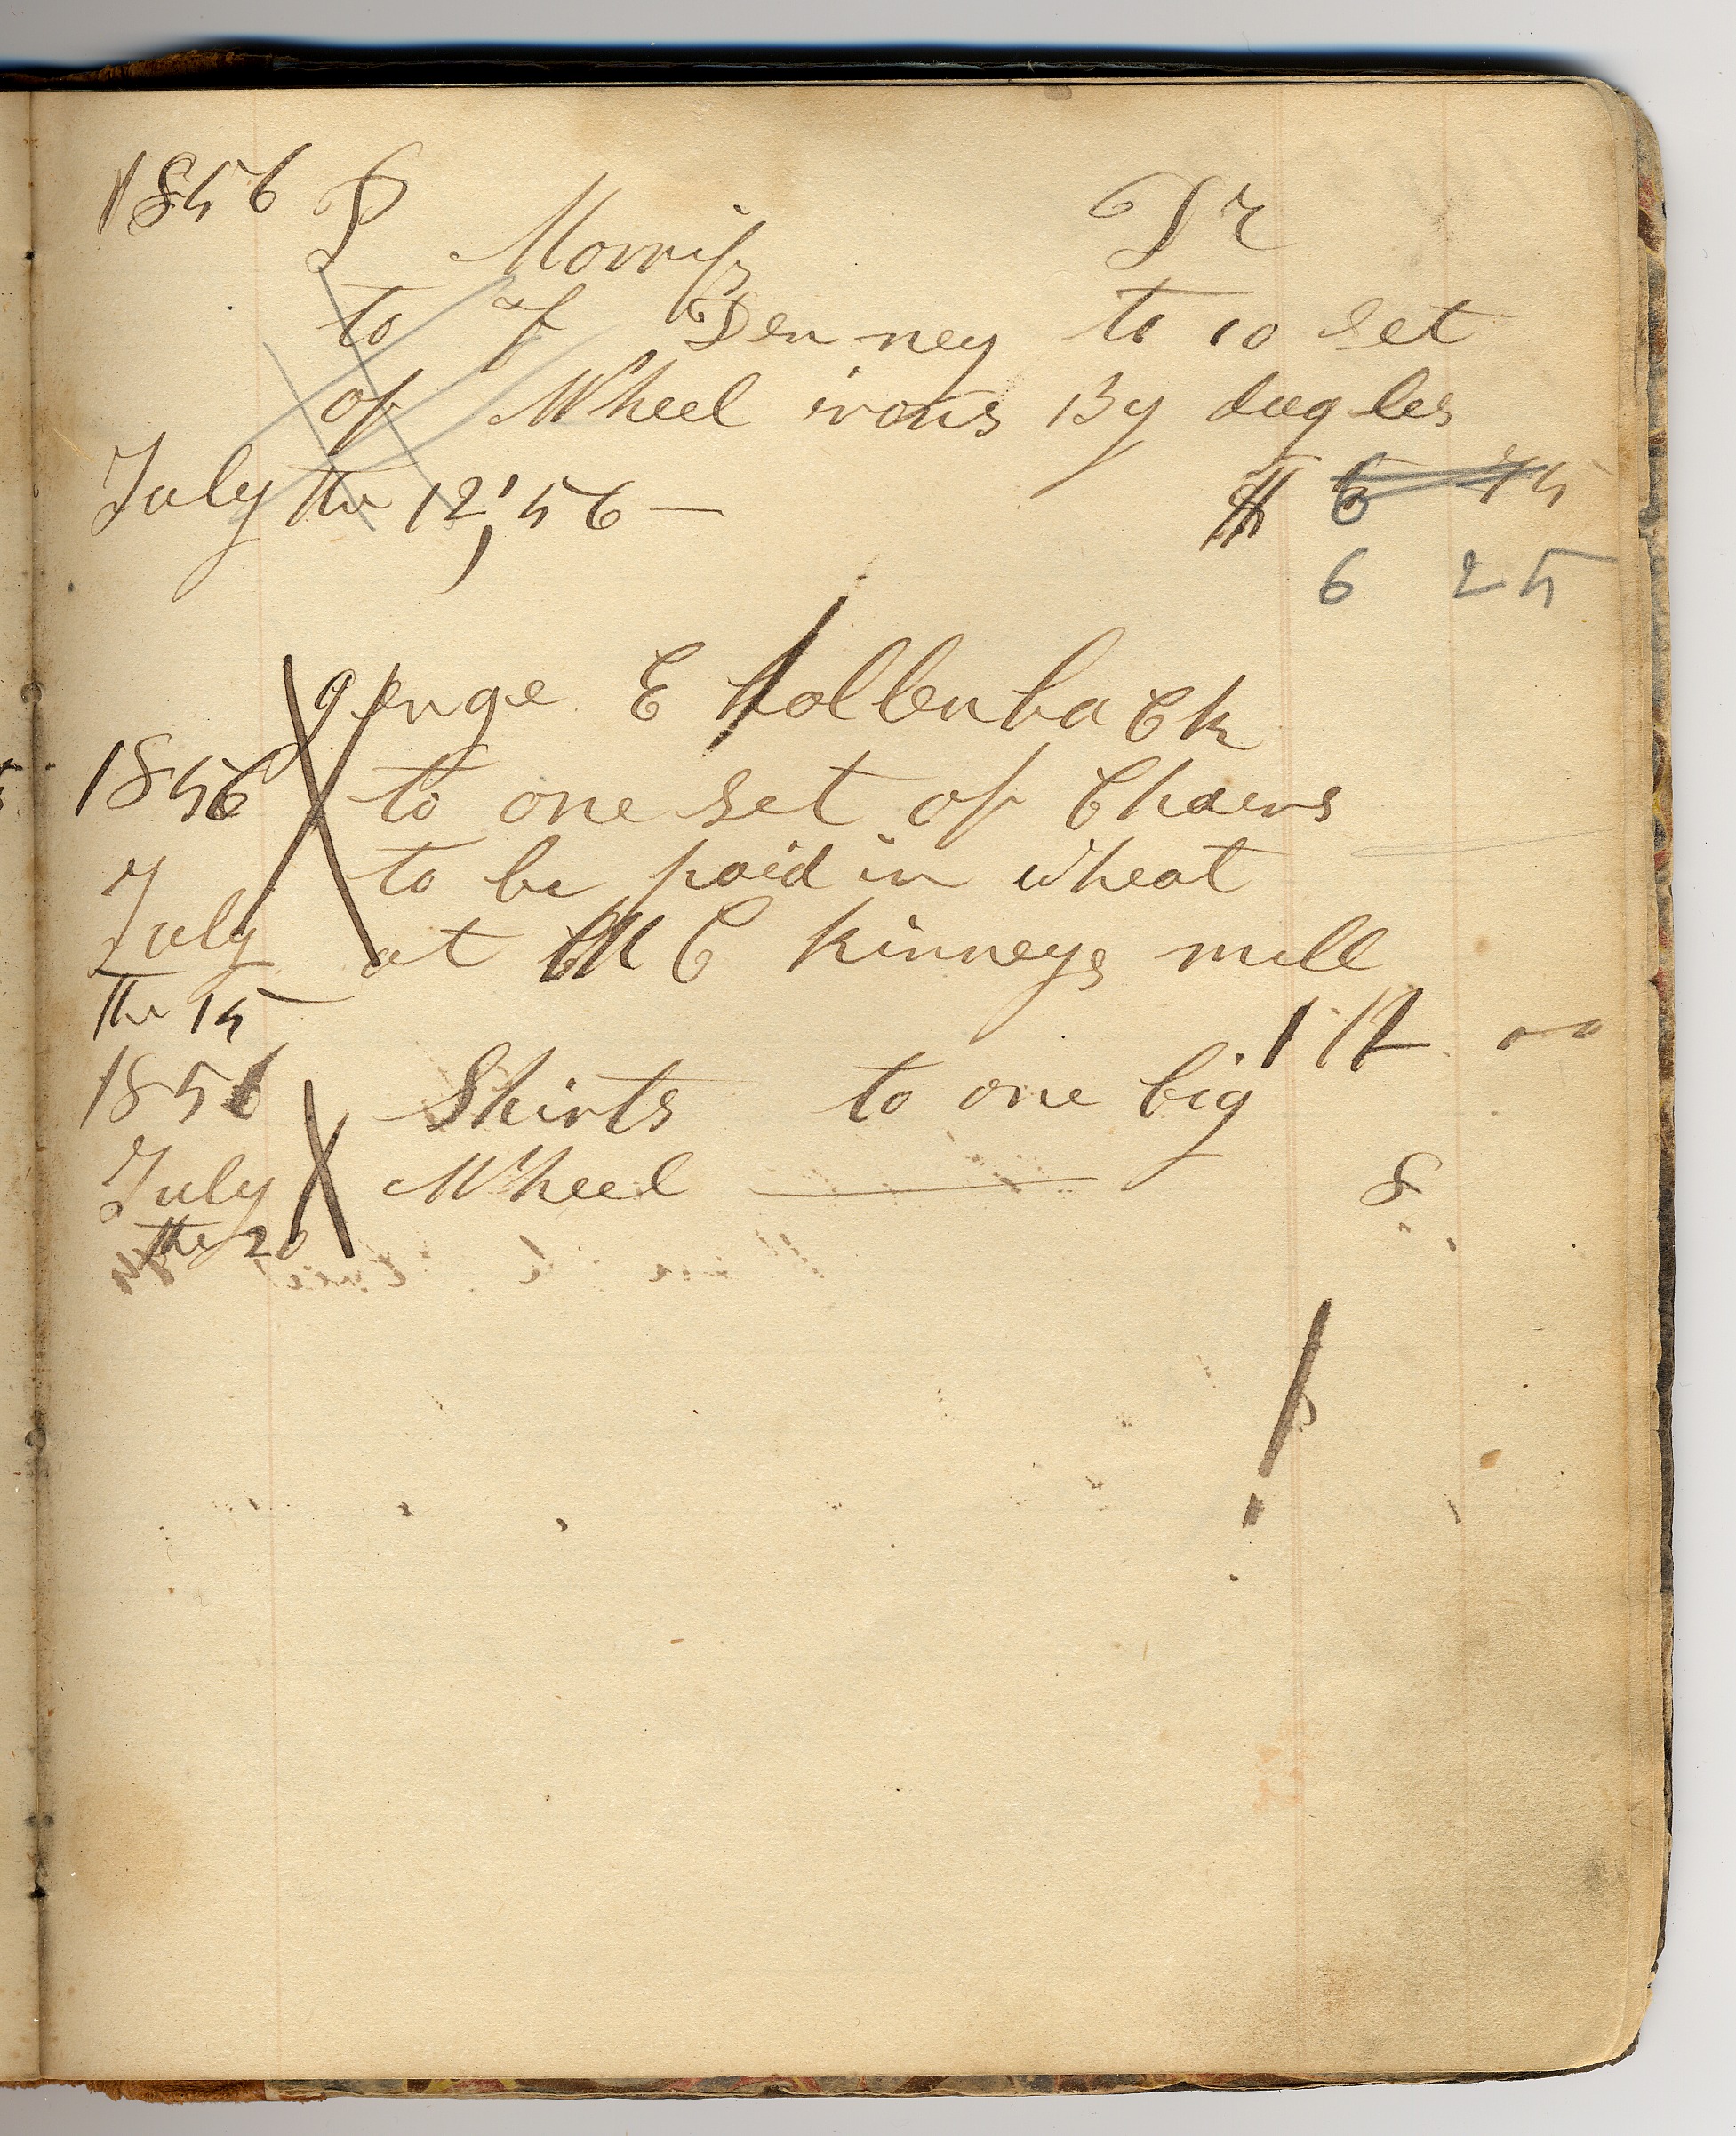 1856 P Morriss Dr
to J Denney to 10 set
of Wheel irons By dug les
July the 12, 56 — $ 6 75
6 25
george E hollenback
1856 to one set of Chaers
to be paid in wheat
July at MC kinneys mill
the 15 12 00
1856 Skirts to one big
July Wheel —— 8
the 20